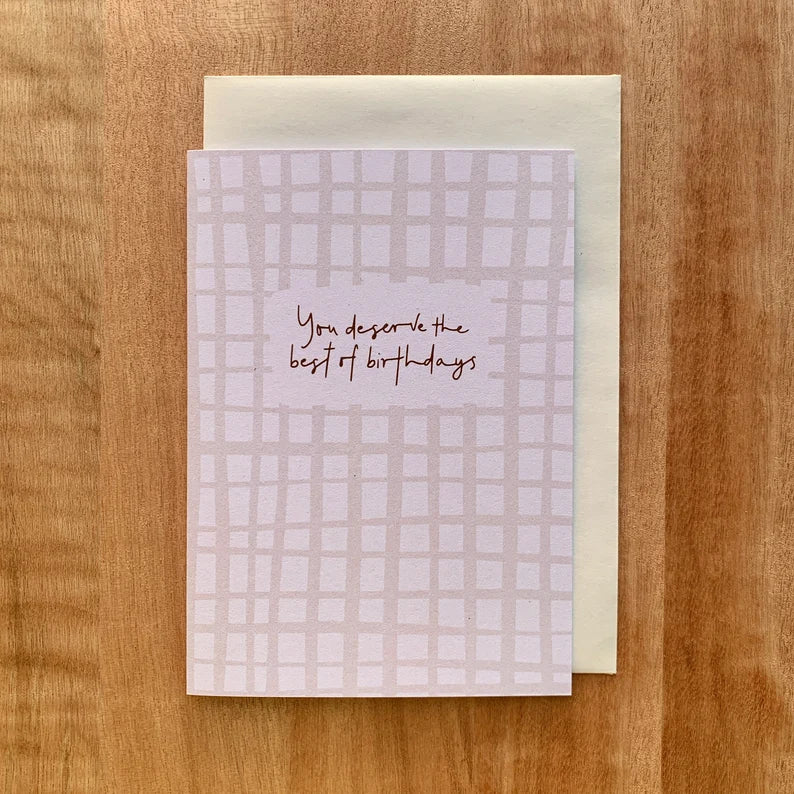 You deserve the
best of birthdays